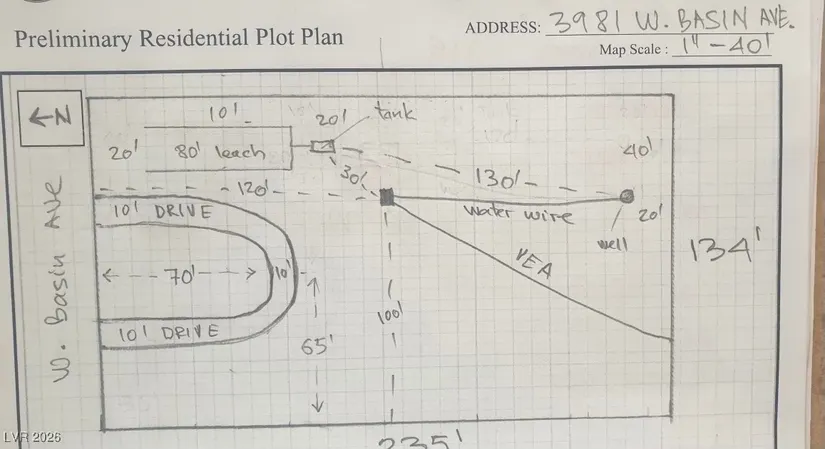 ADDRESS: 3981 W. BASIN AVE.
Preliminary Residential Plot Plan
Map Scale : 1" - 40'
←N
10'
20'
tank
20'
80' leach
40'
30'
130'
120'
water wire
20'
well
10' DRIVE
134'
VEA
W. Basin AVE
70'
10'
100'
65'
10' DRIVE
235'
LVR 2026